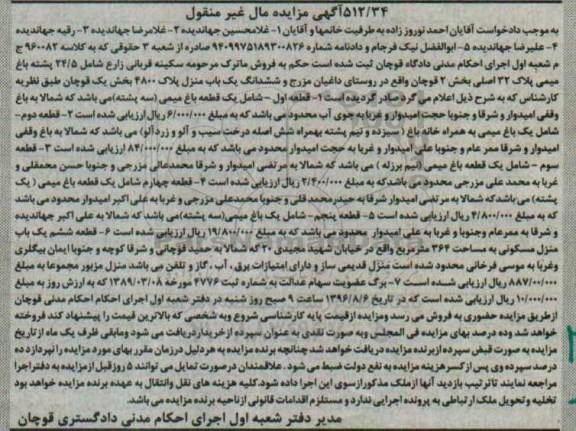 ۵۱۲/۳۴آگهی مزایده مال غیر منقول
به موجب دادخواست آقایان احمد نوروز زاده به طرفیت خانمها و آقایان ۱- غلامحسین جهاندیده ۲- غلامرضا جهاندیده ۳- رقیه جهاندیده
۴- علیرضا جهاندیده ۵- ابوالفضل نیک فرجام و دادنامه شماره ۹۴۰۹۹۷۵۱۸۹۳۰۰۸۲۶ صادره از شعبه ۳ حقوقی که به کلاسه ۹۶۰۰۸۲ ج
م شعبه اول اجرای احکام مدنی دادگاه قوچان ثبت شده است حکم به فروش ماترک مرحومه سکینه قربانی زارع شامل ۲۴/۵ پشته باغ
میمی پلاک ۳۲ اصلی بخش ۲ قوچان واقع در روستای داغیان مزرج و ششدانگ یک باب منزل پلاک ۴۸۰۰ بخش یک قوچان طبق نظریه
کارشناس که به شرح ذیل اعلام می گردد صادر گردیده است ۱- قطعه اول - شامل یک قطعه باغ میمی (سه پشته)می باشد که شمالا به باغ
وقفی امیدوار و شرقا و جنوبا حجت امیدوار و غربا به جوی آب محدود می باشد که به مبلغ ۶/۰۰۰/۰۰۰ ریال ارزیابی شده است ۲- قطعه دوم-
شامل یک باغ میمی به همراه خانه باغ ( سیزده و نیم پشته بهمراه شش اصله درخت سیب و آلو و زردآلو) می باشد که شمالا به باغ وقفی
امیدوار و شرقا ممر عام و جنوبا علی امیدوار و غربا به حجت امیدوار محدود می باشد که به مبلغ ۸۴/۰۰۰/۰۰۰ ریال ارزیابی شده است ۳- قطعه
سوم - شامل یک قطعه باغ میمی (نیم برزله ) می باشد که شمالا به مرتضی امیدوار و شرقا محمدعالی مزرجی و جنوبا حسن محمقلی و
غربا به محمد علی مزرجی محدود می باشدکه به مبلغ ۲/۴۰۰/۰۰۰ ریال ارزیابی شده است ۴- قطعه چهارم شامل یک قطعه باغ میمی ( یک
پشته) می باشدکه شمالا به مرتضی امیدوار شرقا به حیدرمحمد قلی و جنوبا محمدعلی مزرجی و غربا به علی اکبر امیدوار محدود می باشد
که به مبلغ ۴/۸۰۰/۰۰۰ ریال ارزیابی شده است ۵- قطعه پنجم- شامل یک باغ میمی(سه پشته)می باشد که شمالا به علی اکبر جهاندیده
و شرقا به ممرعام وجنوبا و غربا به علی امیدوار محدود می باشد که به مبلغ ۱۹/۸۰۰/۰۰۰ ریال ارزیابی شده است ۶- قطعه ششم یک باب
منزل مسکونی به مساحت ۳۶۴ مترمربع واقع در خیابان شهید مجیدی ۲۰ که شمالا به قوچانی و شرقا کوچه و جنوبا ایمان بیگلری
وغربا به موسی فرخانی محدود شده است منزل قدیمی ساز و دارای امتیازات برق ، آب ، گاز و تلفن می باشد منزل مزبور مجموعا به مبلغ
۸۸۷/۰۰۰/۰۰۰ ریال ارزیابی شده است ۷- برگ عضویت سهام عدالت به شماره ثبت ۴۷۷۶ مورخه ۱۳۸۹/۰۳/۰۸ که به ارزش روز به مبلغ
۱۰/۰۰۰/۰۰۰ ریال ارزیابی شده است که در تاریخ ۱۳۹۶/۸/۶ ساعت ۹ صبح روز شنبه در دفتر شعبه اول اجرای احکام احکام مدنی قوچان
از طریق مزایده حضوری به فروش می رسد ومزایده ازقیمت پایه کارشناسی شروع وبه شخصی که بالاترین قیمت را پیشنهاد کند فروخته
خواهد شد وده درصد بهای مزایده فی المجلس وبه صورت نقدی به عنوان سپرده از خریداردریافت می شود ومابقی ظرف یک ماه ازتاریخ
مزایده به صورت قبض سپرده ازبرنده مزایده دریافت خواهد شد چنانچه برنده مزایده به هردلیل درزمان مقرر بهای مورد مزایده را نپردازد ده
درصد سپرده وی پس از کسرهزینه مزایده به نفع دولت ضبط می شود . علاقمندان درصورت تمایل می توانند ۵ روزقبل ازمزایده به دفتراجرا
مراجعه نمایند تاترتیب بازدید آنها ازملک مذکورازسوی این اجرا داده شود.کلیه هزینه های نقل وانتقال به عهده برنده مزایده خواهد بود
تخلیه وتحویل ملک ارتباطی به پرونده اجرایی ندارد و مستلزم اقدامات قانونی ازناحیه برنده مزایده می باشد.
مدیر دفتر شعبه اول اجرای احکام مدنی دادگستری قوچان